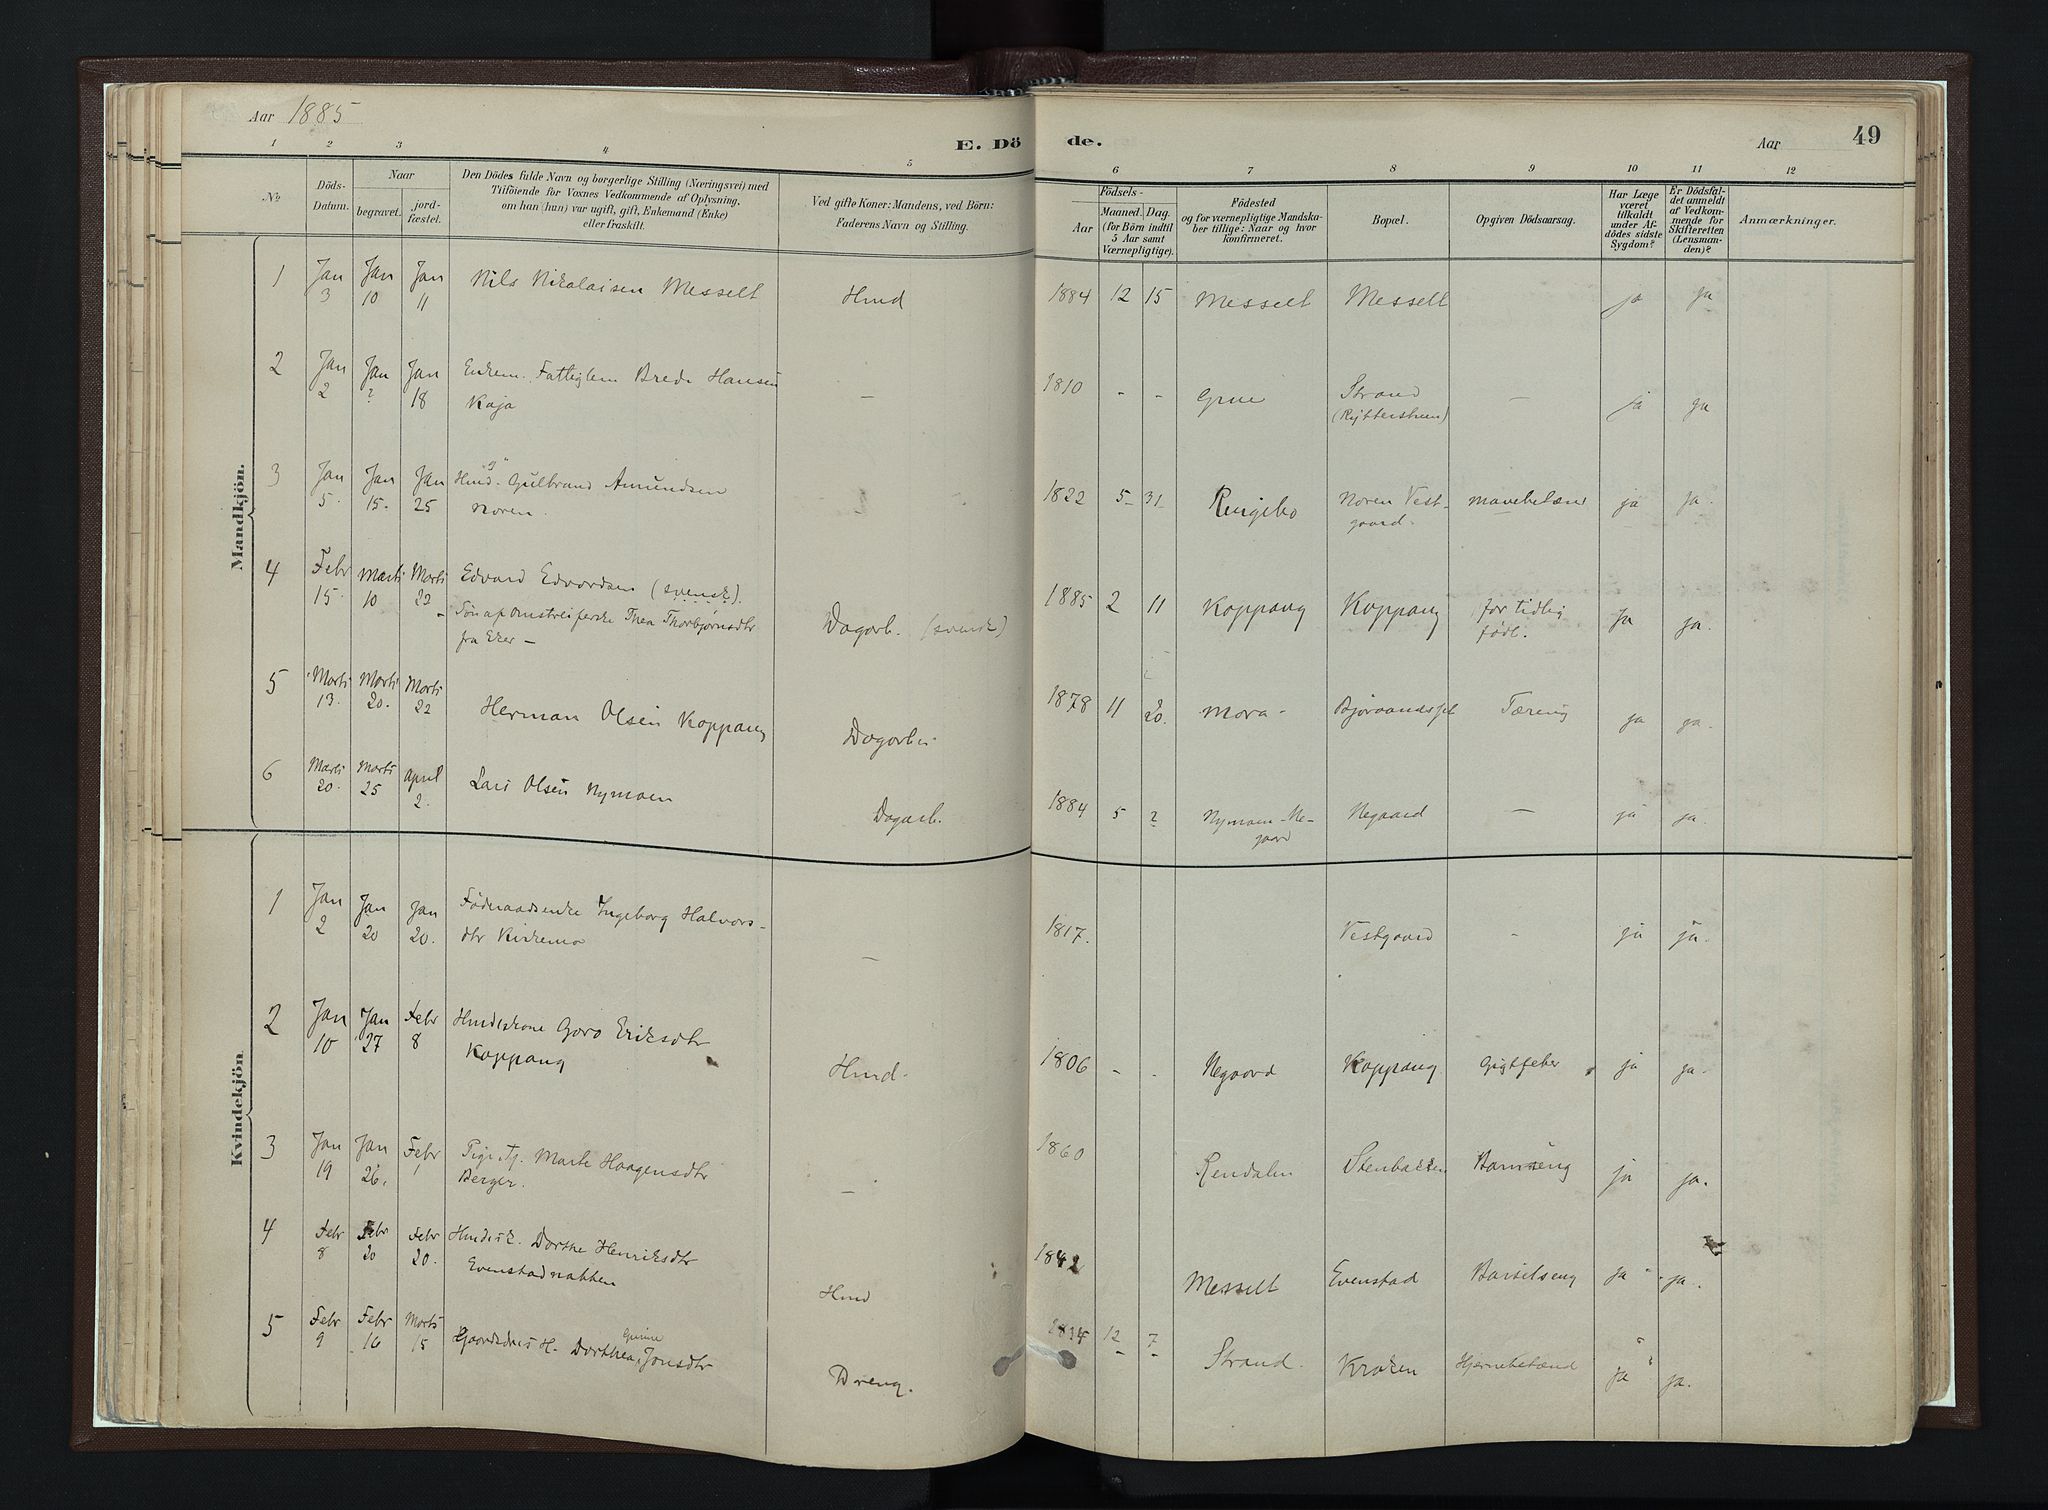 Aar 1885
E. Dö de.
Aar
49
1 2 3 4 5 6 7 8 9 10 11 12
No.
Döds-Datum.
Naar
begravet.
jordfæstet.
Den Dödes fulde Navn og borgerlige Stilling (Næringsvei) med
Tilföiende for Voxnes Vedkommende af Oplysning,
om han (hun) var ugift, gift, Enkemand (Enke)
eller fraskilt.
Ved gifte Koner: Mandens, ved Börn:
Faderens Navn og Stilling.
Födsels-
Aar
Maaned. Dag.
(for Börn indtil
5 Aar samt
Værnepligtige).
Födested
og for værnepligtige Mandskaber
tillige: Naar og hvor
konfirmeret.
Bopæl.
Opgiven Dödsaarsag.
Har Læge
været
tilkaldt
under Afdödes
sidste
Sygdom?
Er Dödsfaldet
anmeldt
af Vedkommende
for
Skifteretten
(Lensmanden)?
Anmærkninger.
Mandkjön.
1 Jan 3 Jan 10 Jan 11 Nils Nikolaisen Messelt Hmd 1884 12 15 Messelt Messelt ja ja
2 Jan 2 Jan ? Jan 18 Enkem. Fattiglem Brede Hansen
Kaja – 1810 - - Grue Strand
– ja ja
3 Jan 5. Jan 15. Jan 25 Hmd. Gulbrand Amundsen
Noren. – 1822 5 31 Ringebo Noren Vest-
gaard. ja ja.
4 Febr 15. Marts 10 Marts 22 Edvard Edvardsen (svensk).
Søn af omstreiferske Thea Thorbjørnsdtr
fra Eker –
Dagarb. (svensk) 1885 2 11 Koppang Koppang for tidlig
født. ja ja.
5 Marts 13. Marts 20. Marts 22 Herman Olsen Koppang Dagarb. 1878 11 20. Mora - Tæring ja ja.
6 Marts 20. Marts 25 April 2. Lars Olsen Nymoen Dagarb. 1884 5 ? Nymoen - Ne-
gaard Negaard – ja ja.
Kvindekjön.
1 Jan 2 Jan 20 Jan 20. Føderaadsenke Ingeborg Halvors-
dtr Kirkemo – 1817. Vestgaard - ja ja.
2 Jan 10 Jan 27 Febr 8 Hmdskone Goro Eriksdtr
Koppang Hmd. 1806 - - Negaard Koppang Gigtfeber ja ja.
3 Jan 19 Jan 26. Febr 1 Pige Marte Haagensdtr
Berger. – 1860 Rendalen Stenbakken Barnseng ja ja.
4 Febr 8 Febr 20 Febr 20. Dorthe Henriksdtr
Evenstadnakken Hmd 1842 Messelt Evenstad Barselseng ja ja.
5 Febr 9 Febr 16 Marts 15 H. Dorthea Jonsdtr
Dreng. 12 7 Strand. Kroken Hjernebetænd ja ja.